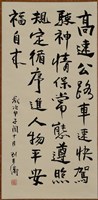 高速公路車速快駕
駛神情保常態遵照
規定循序進人物平安
福自來
歲次甲子閏十月